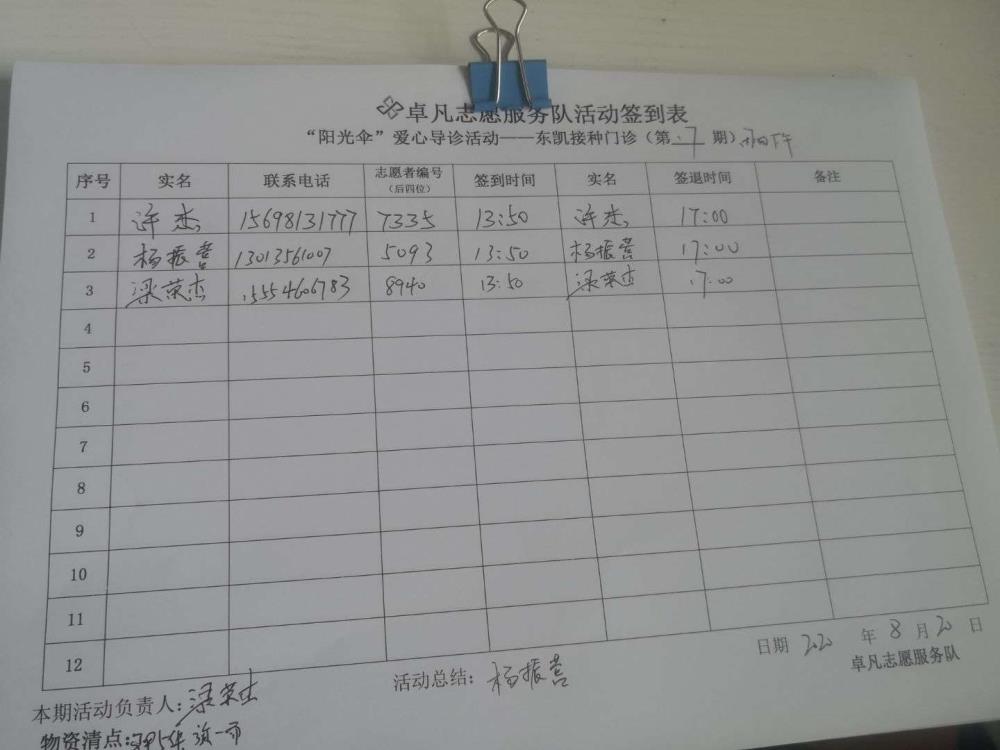 卓凡志愿服务队活动签到表
“阳光伞”爱心导诊活动——东凯接种门诊（第 7 期）
序号 实名 联系电话 志愿者编号（后四位） 签到时间 实名 签退时间 备注
1 许杰 15698131777 7335 13:50 许杰 17:00
2 杨振营 13013561007 5093 13:50 杨振营 17:00
3 梁荣杰 15554606783 8940 13:50 梁荣杰 17:00
4
5
6
7
8
9
10
11
12
日期 22 年 8 月 20 日
卓凡志愿服务队
本期活动负责人：梁荣杰 活动总结：杨振营
物资清点：